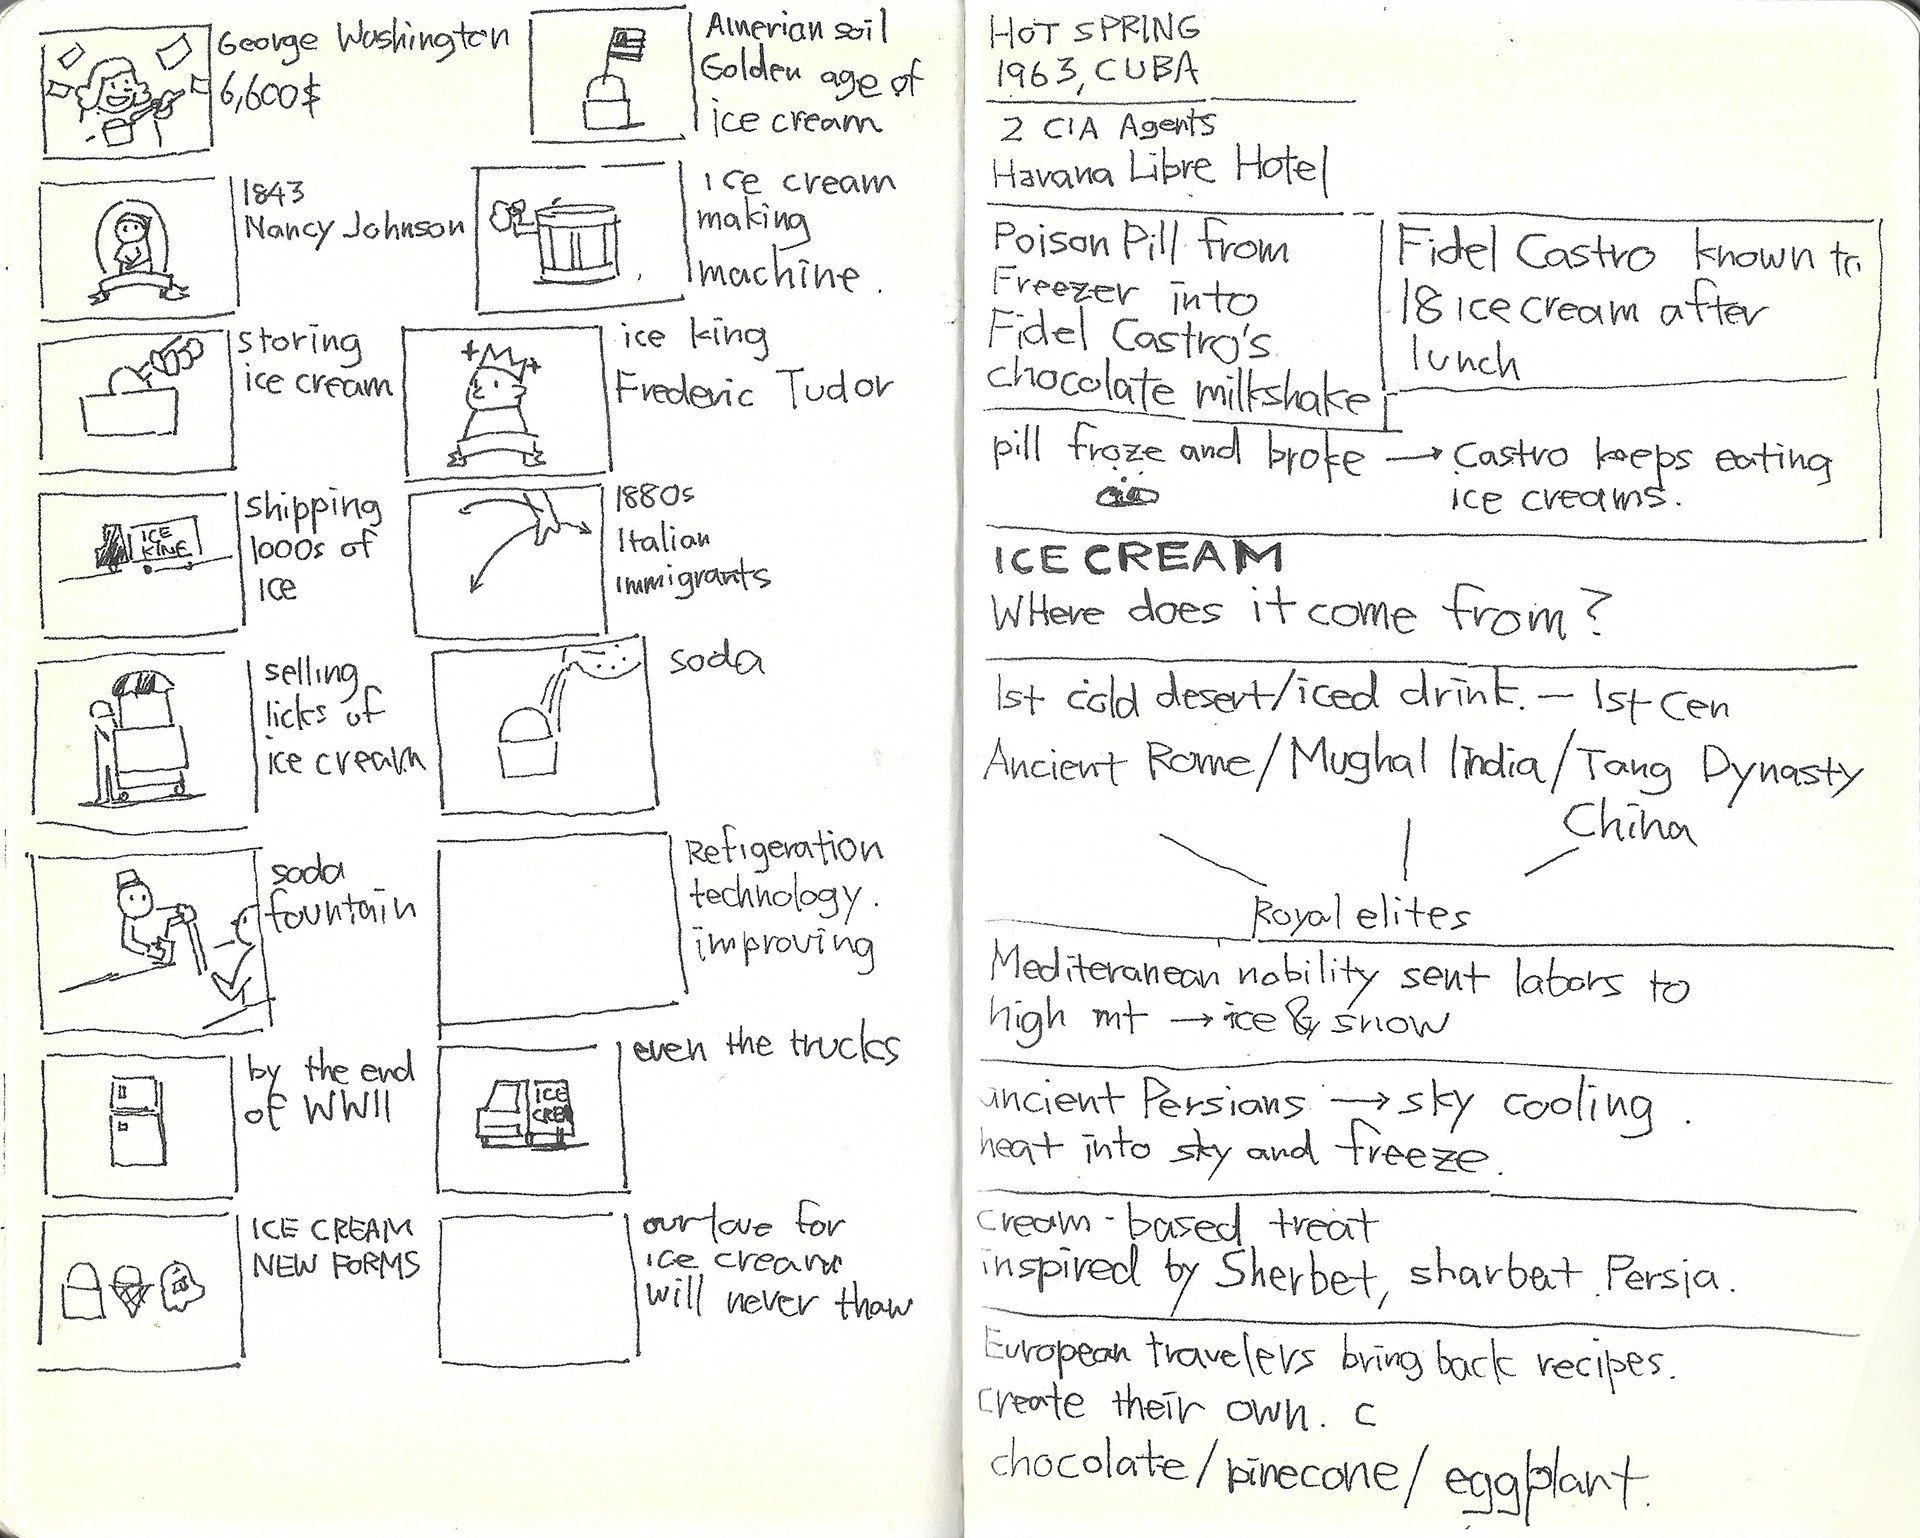 George Washington
6,600$
Amerian soil
Golden age of
ice cream
1843
Nancy Johnson
ice cream
making
machine.
storing
ice cream
ice king
Frederic Tudor
ICE
KING
shipping
1000s of
ice
1880s
Italian
immigrants
selling
licks of
ice cream
soda
soda
fountain
Refigeration
technology.
improving
by the end
of WWII
ICE
CREA
even the trucks
ICE CREAM
NEW FORMS
our love for
ice cream
will never thaw
HOT SPRING
1963, CUBA
2 CIA Agents
Havana Libre Hotel
Poison Pill from
Freezer into
Fidel Castro's
chocolate milkshake
Fidel Castro known to
18 ice cream after
lunch
pill froze and broke → Castro keeps eating
ice creams.
ICE CREAM
Where does it come from?
1st cold desert/iced drink. — 1st Cen
Ancient Rome/Mughal India/Tang Dynasty
China
Royal elites
Mediteranean nobility sent labors to
high mt → ice & snow
ancient Persians → sky cooling.
heat into sky and freeze.
cream-based treat
inspired by Sherbet, sharbat Persia.
European travelers bring back recipes.
create their own. C
chocolate/pinecone/eggplant.